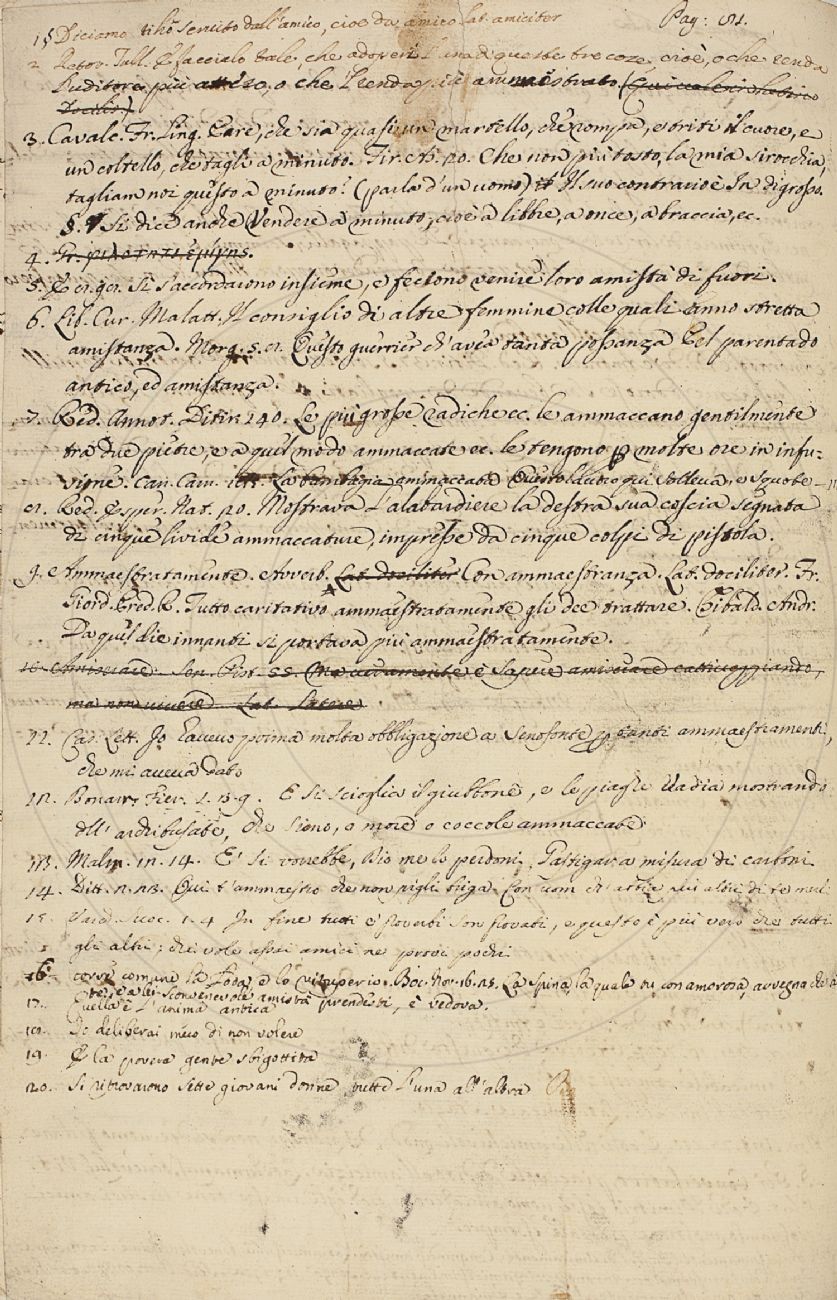 Pag: 51.
1 § Diciamo ti ho servito dall'amico, cioè da amico Lat. amiciter
2 Retor. Tull. E faccialo tale, che adoperi l'una di queste tre cose, cioè, o che renda
l'uditore più atteso, o che 'l renda più ammaestrato
docilis)
3. Cavalc. Fr. Ling. Care, che sia quasi un martello, che rompa, e triti il cuore, e
un coltello, che tagli a minuto. Fir. As. 20. Che non più tosto, la mia sirocchia,
tagliam noi questo a minuto? (parla d'un uomo) Il suo contrario è In digrosso.
§. Si dice anche Vendere a minuto, cioè a libbre, a once, a braccia, ec.
4. Gr.
5. E si s'accordarono insieme, e feciono venire loro amistà di fuori.
6. Lib. Cur. Malatt. Il consiglio di altre femmine colle quali anno stretta
amistanza. Morg. Questo guerrier ch'avea tanta possanza Bel parentado
antico, ed amistanza.
7. Red. Annot. Ditir. 240. Le più grosse radiche ec. le ammaccano gentilmente
tra due pietre, e a quel modo ammaccate ec. le tengono p molte ore in infu-
sione. Can. Carn. La bambagia ammaccata Questo lauoro qui solleva, e scuote
8. Red. Esper. Nat. 20. Mostrava l'alabardiere la destra sua coscia segnata
di cinque livide ammaccature, impresse da cinque colpi di pistola.
9. Ammaestratamente. Avverb. Lat. dociliter Con ammaestranza. Lat. dociliter. Gr.
Giord. Pred. R. Tutto caritativo ammaestratamente gli dee trattare. Tibald. Andr.
Da quel die innanti si portava più ammaestratamente.
Sen. Pist. 55. è sapere cattiveggiando,
ma non vivere. Lat.
11. Car. Lett. Io haveva prima molta obbligazione a Senofonte p tanti ammaestramenti,
che mi aveva dato
12. Bonarr. Fier. E si scioglia il giubbone, e le piaghe Vadia mostrando
dell'archibusate, che sieno, o more o coccole ammaccate
13. Malm. 14. E' si vorrebbe, Dio me lo perdoni, Gastigar a misura di carboni
14. Ditt. 2. 23. Qui t'ammaestro che non pigli briga Con uom
15. In fine tutti e proverbi son provati, e questo è più vero che tutti
gli altri; che vole assai amici ne provi pochi
16. corse comune la loda, e lo vituperio. Boc. Nov. 16. 25. La Spina, la quale tu con amorosa, avvegna che a
te, e a lei sconvenevole amistà prendesti, è vedova.
17. Quella è l'anima antica
18. Io deliberai meco di non volere
19. E la povera gente sbigottita
20. Si ritrovarono sette giovani donne tutte l'una all'altra